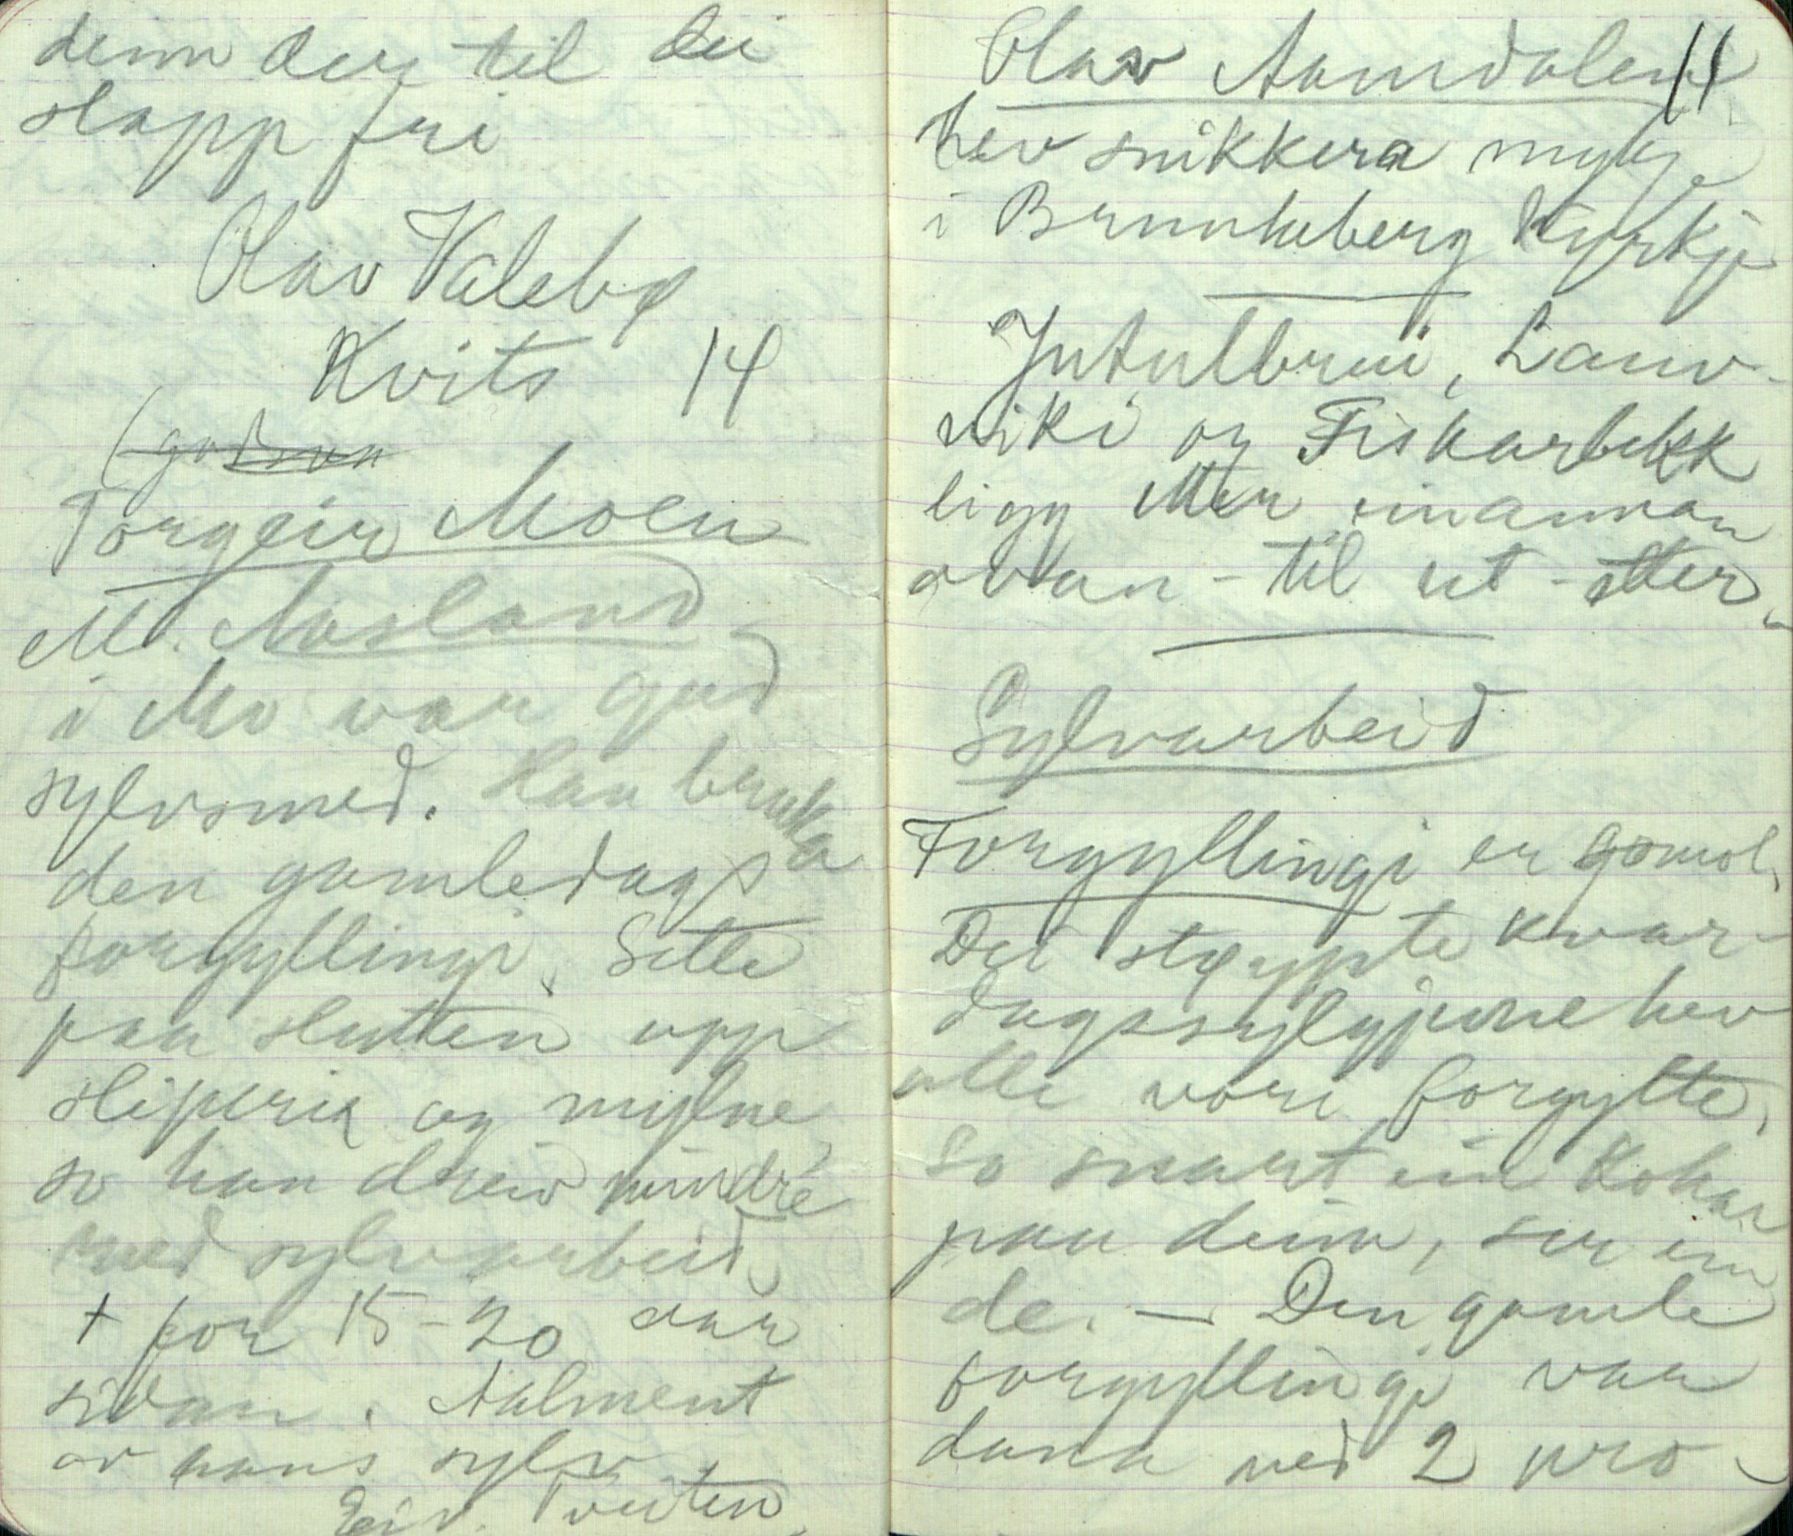 deim der til dei
slapp fri
Olav Valebø
Kvits 14
(godson
Torgeir Moen
M. Aasland
i Mo var god
sylvsmed. Han bruka
den gamledagse
forgyllingi. Sette
paa slutten upp
sliperia og mylne,
so han dreiv mindre
med sylvarbeid.
+ for 15-20 aar
sidan. Aalment
av hans sylv
Eiv. Tveiten.
Olav Aamdalen 11
hev snikkera mykje
i Brunkeberg Kyrkje
Jutulbrui, Lauv-
viki og Fiskarbekk
ligg etter einannan
ovan-til ut-etter.
Sylvarbeid
Forgyllingi er gomol.
Dei støypte kvar-
dagssylgjune hev
alle vore forgylte,
So snart ein kokar
paa deim, ser ein
de. — Den gamle
forgyllingi var
dana med 2 pro-